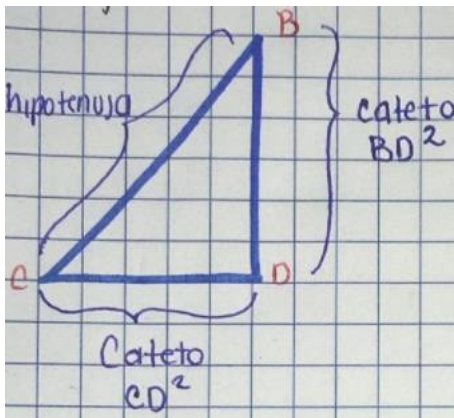 B
hipotenusa
cateto
BD²
C
D
Cateto
CD²